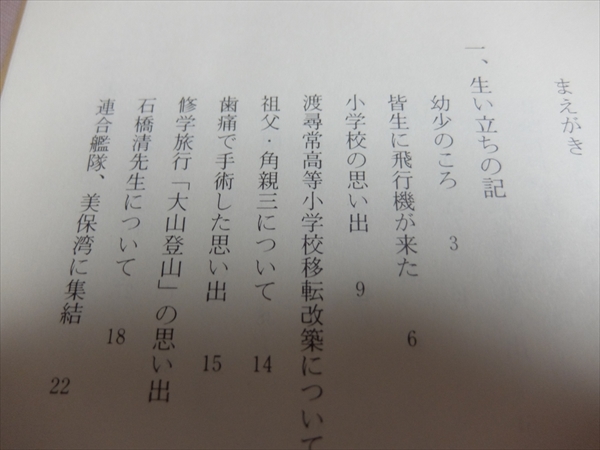 まえがき
一、生い立ちの記
幼少のころ 3
皆生に飛行機が来た 6
小学校の思い出 9
渡尋常高等小学校移転改築について
祖父・角親三について 14
歯痛で手術した思い出 15
修学旅行「大山登山」の思い出
石橋清先生について 18
連合艦隊、美保湾に集結 22